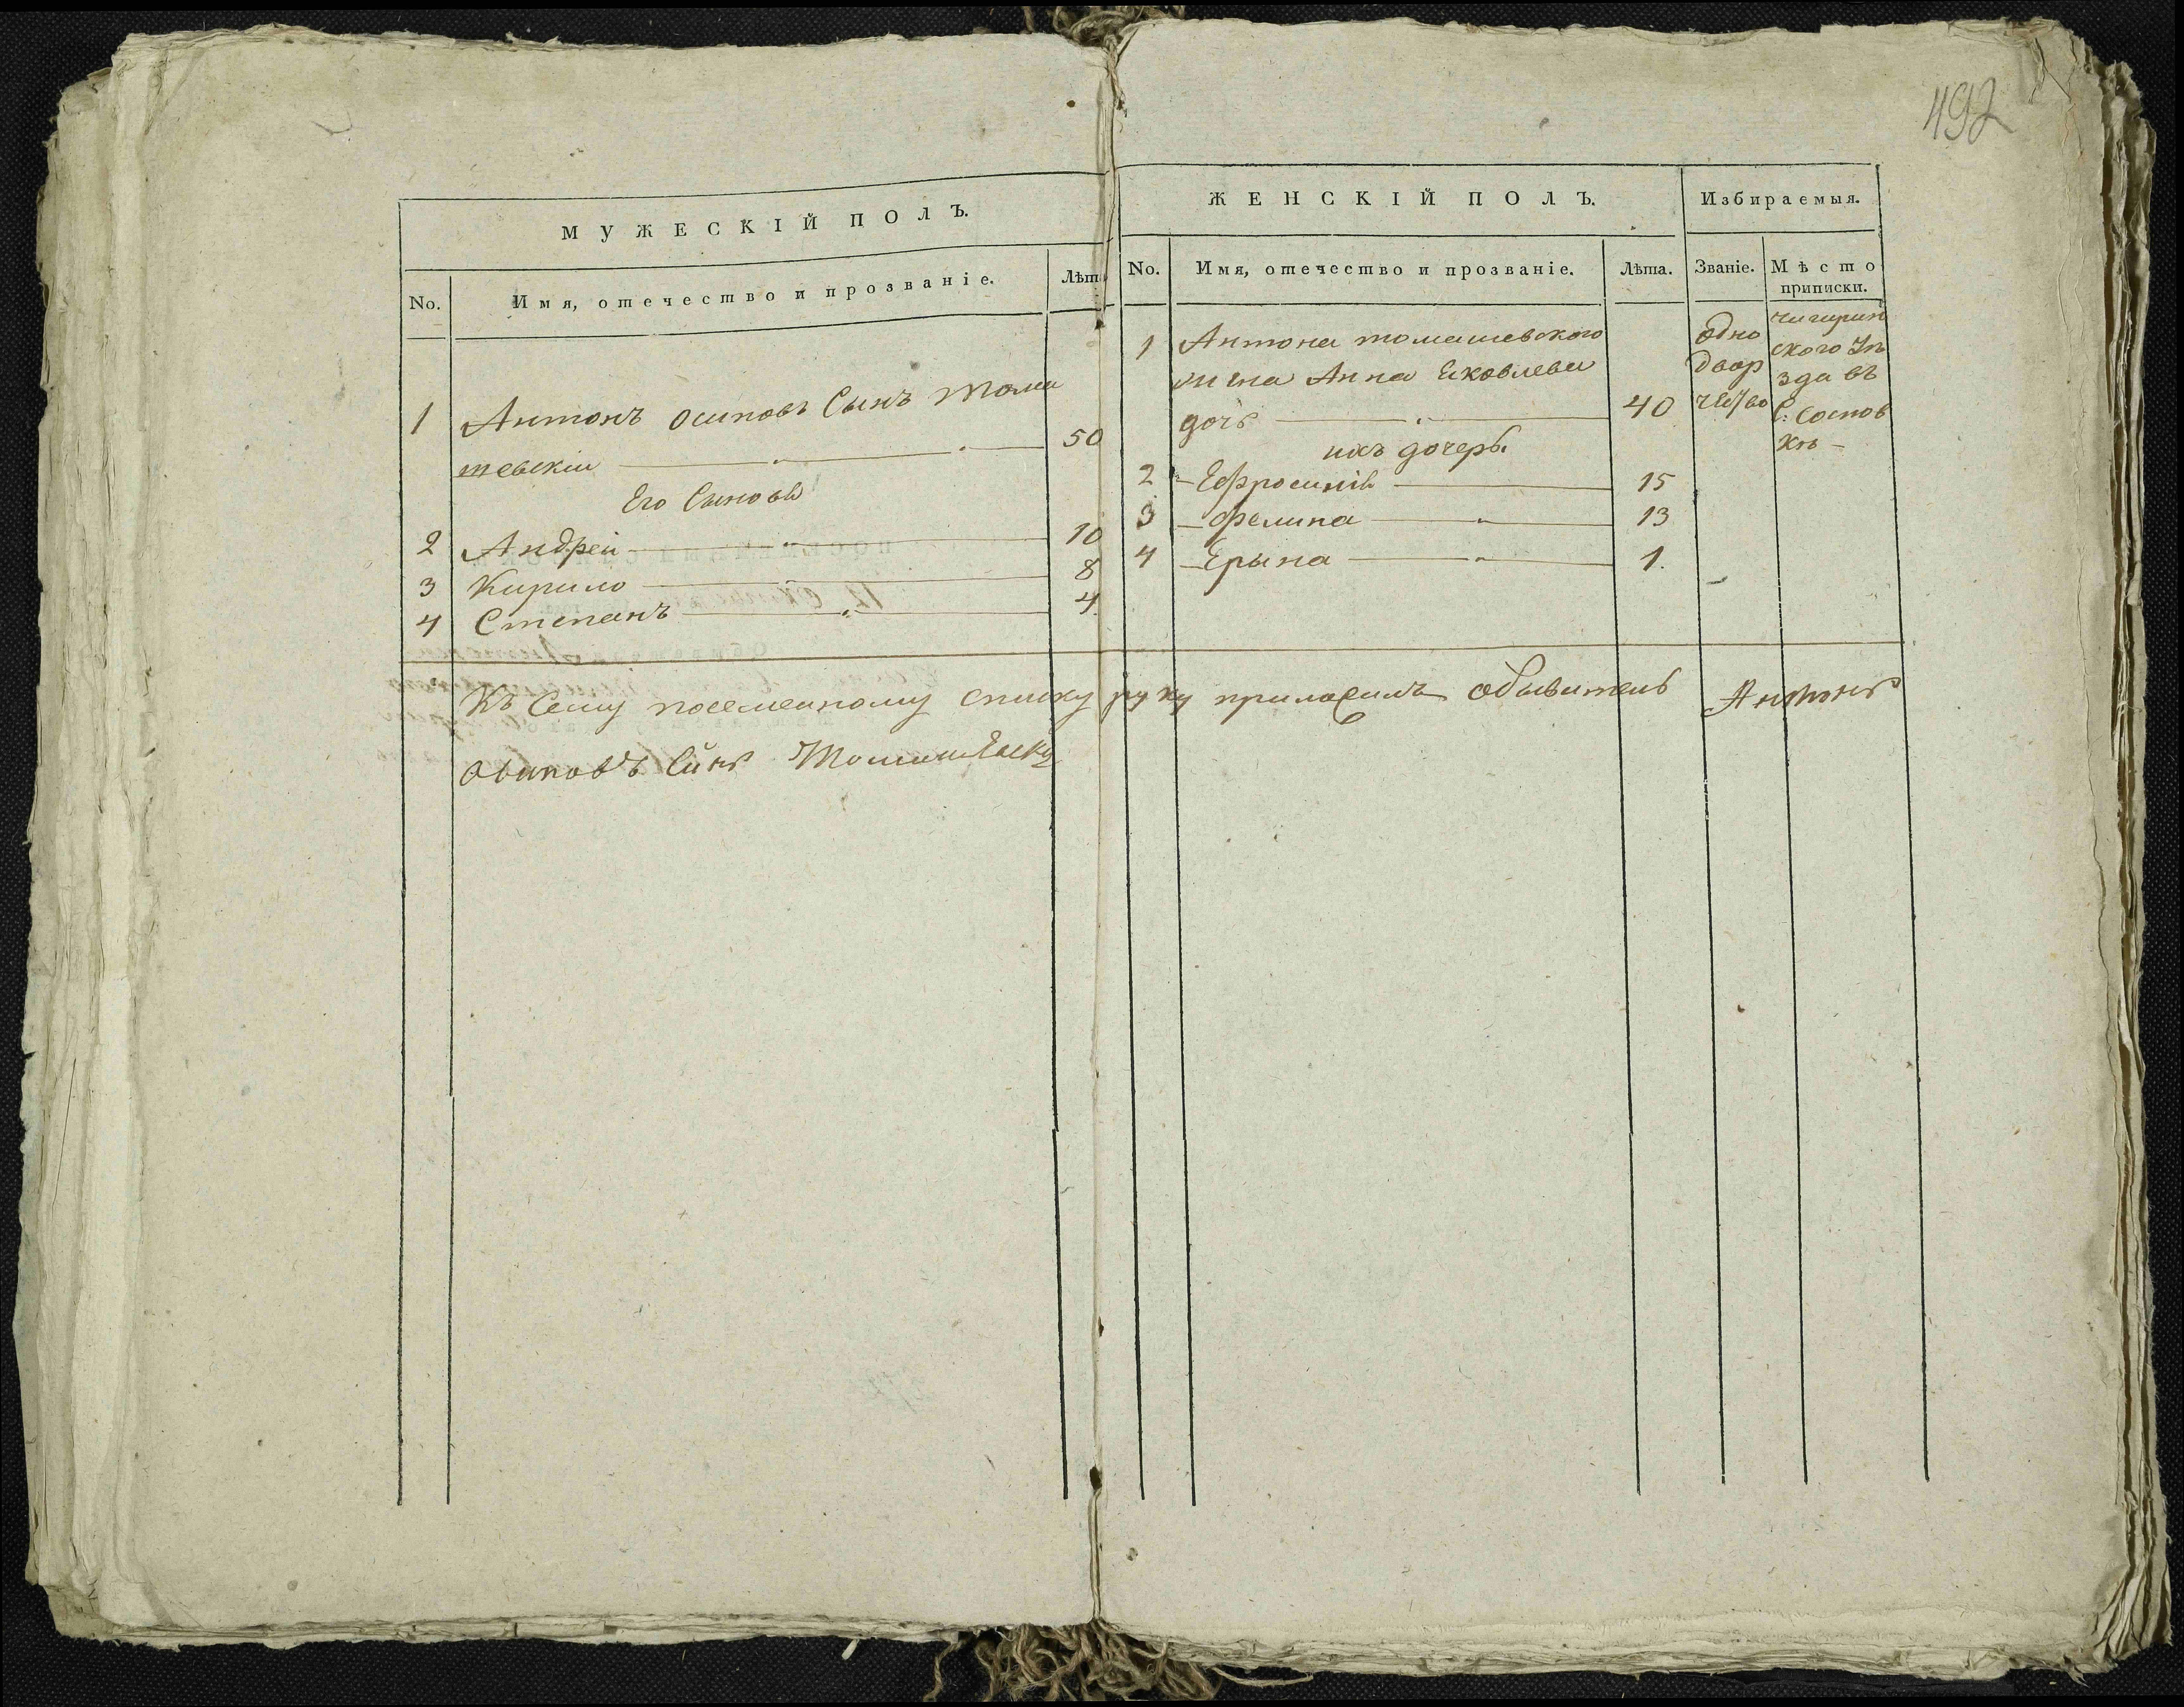 492
МУЖЕСКІЙ ПОЛЪ.
No. Имя, отечество и прозваніе. Лѣта
1 Антонъ Осиповъ Сынъ Тома
шевскии 50
Его Сыновя
2 Андреи 10
3 Кирило 8
4 Степанъ 4.
ЖЕНСКІЙ ПОЛЪ. Избираемыя.
No. Имя, отечество и прозваніе. Лѣта. Званіе. Мѣсто
приписки.
1 Антона томашевского
жина Анна Яковлева
дочь 40
ихъ дочерь
2 Ефросинія 15
3 Фелипа 13
4 Ерына 1.
одно
двор
чигирин
ского Уѣ
зда въ
С: Соснов
кѣ
Къ Сему посемейному списку руку приложилъ обыватель Антонъ
Осиповъ Синъ